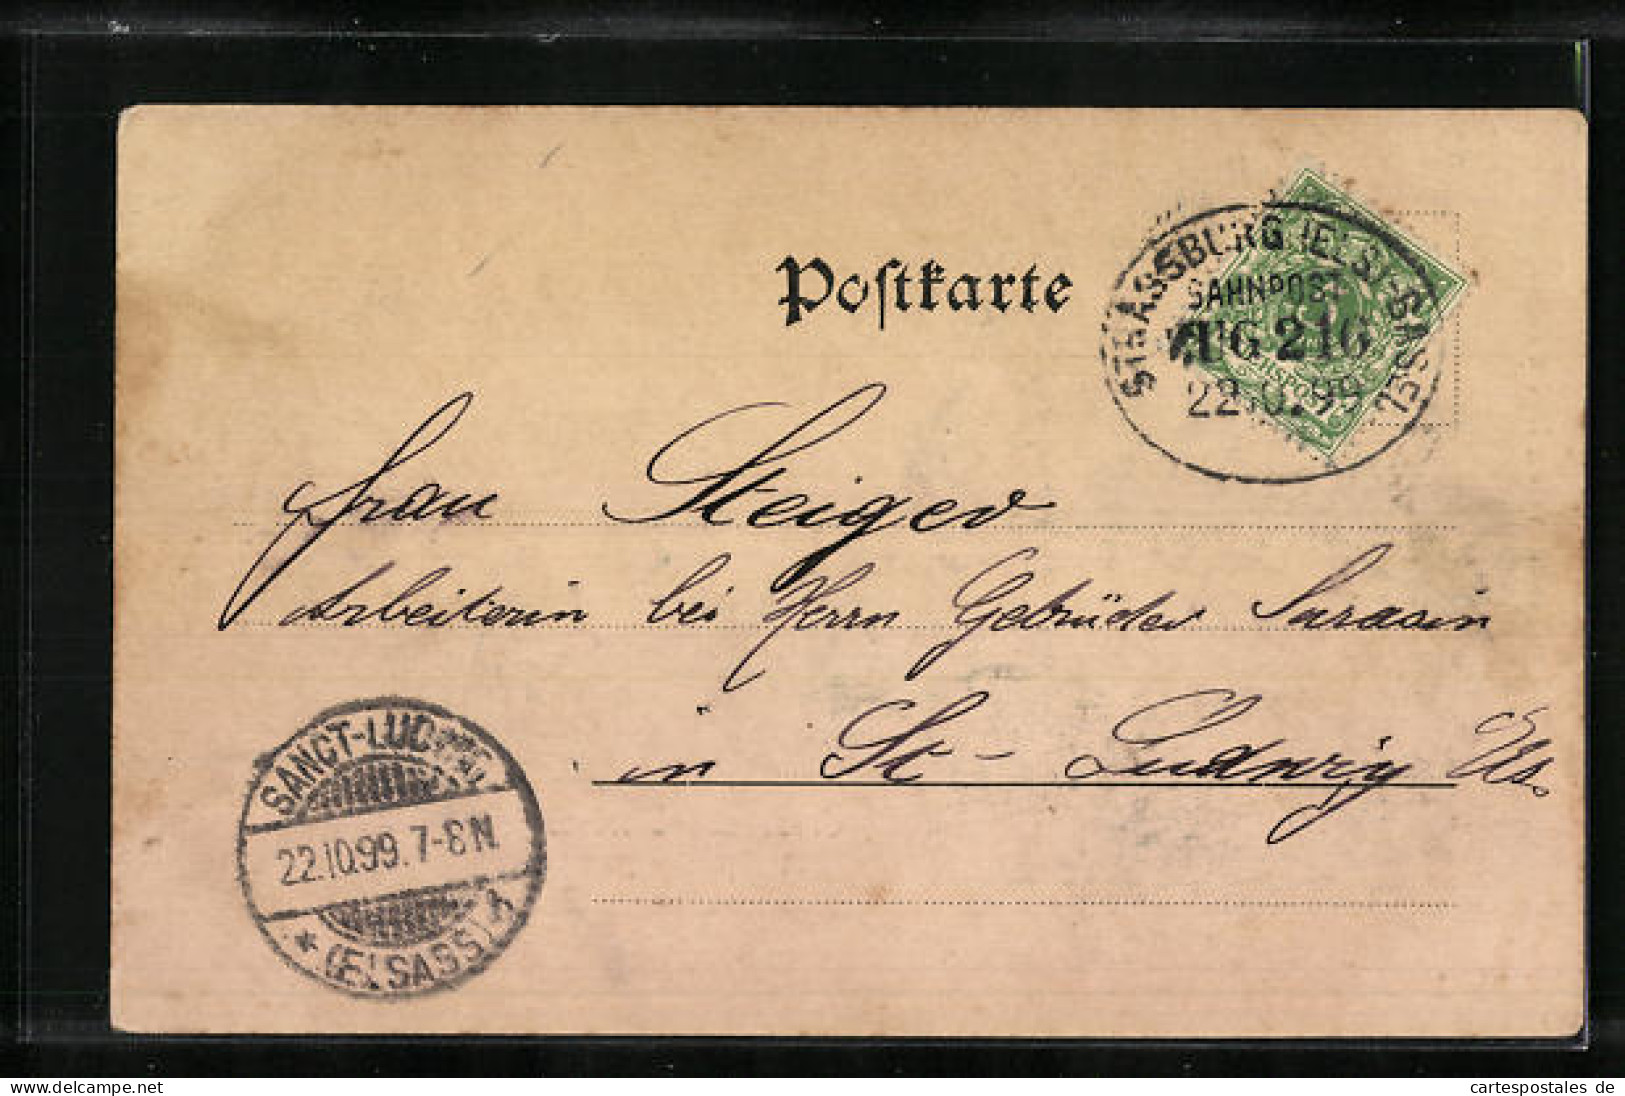 Postkarte
STRASSBURG (ELS.)-BASEL
BAHNPOST
ZUG 216
22.10.99
Frau Steiger
Arbeiterin bei Herrn Gebrüder Sarasin
in St-Ludwig Els.
SANCT-LUDWIG
22.10.99. 7-8N.
* (ELSASS)
cartespostales de